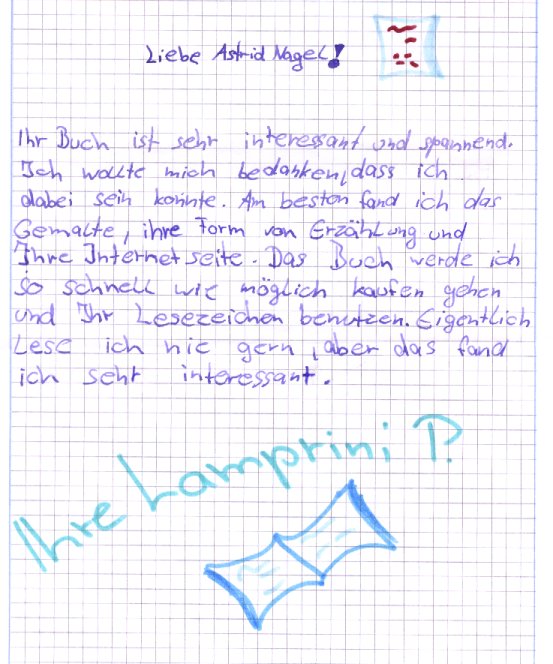 Liebe Astrid Nagel!
Ihr Buch ist sehr interessant und spannend.
Ich wollte mich bedanken, dass ich
dabei sein konnte. Am besten fand ich das
Gemalte, ihre Form von Erzählung und
Ihre Internetseite. Das Buch werde ich
so schnell wie möglich kaufen gehen
und Ihr Lesezeichen benutzen. Eigentlich
Lese ich nie gern, aber das fand
ich sehr interessant.
Ihre Lamprini P.